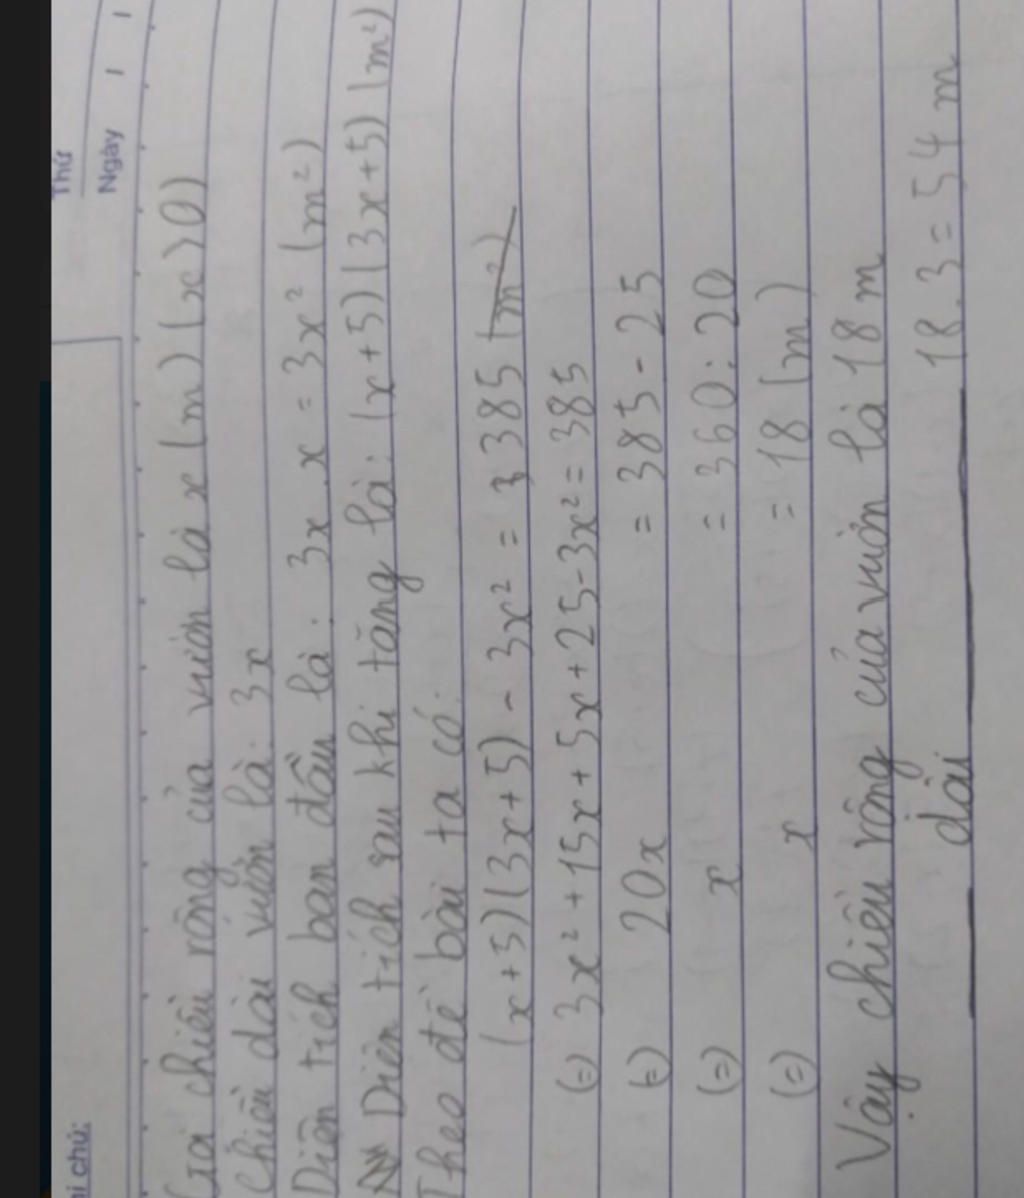 Thứ
Ngày / /
hi chú:
Gọi chiều rộng của vườn là x (m) (x>0)
Chiều dài vườn là: 3x
Diện tích ban đầu là: 3x . x = 3x² (m²)
Diện tích sau khi tăng là: (x+5)(3x+5) (m²)
Theo đề bài ta có:
(x+5)(3x+5) - 3x² = 385 (m²)
(=) 3x² + 15x + 5x + 25 - 3x² = 385
(=) 20x = 385 - 25
(=) x = 360 : 20
(=) x = 18 (m)
Vậy chiều rộng của vườn là 18 m
dài 18.3 = 54 m